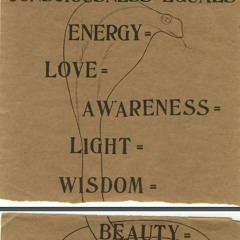 CONSCIOUSNESS EQUALS
ENERGY=
LOVE=
AWARENESS=
LIGHT=
WISDOM=
BEAUTY=